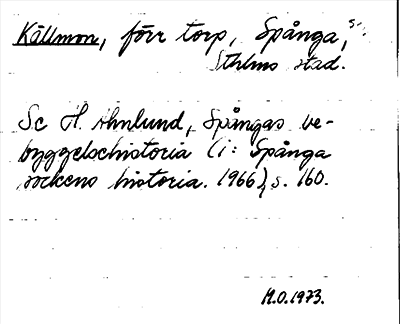 Källmon, förr torp, Spånga, s:n
Sthlms stad.
Se H. Ahnlund, Spångas be-
byggelsehistoria (i: Spånga
sockens historia. 1966), s. 160.
M.O.1973.